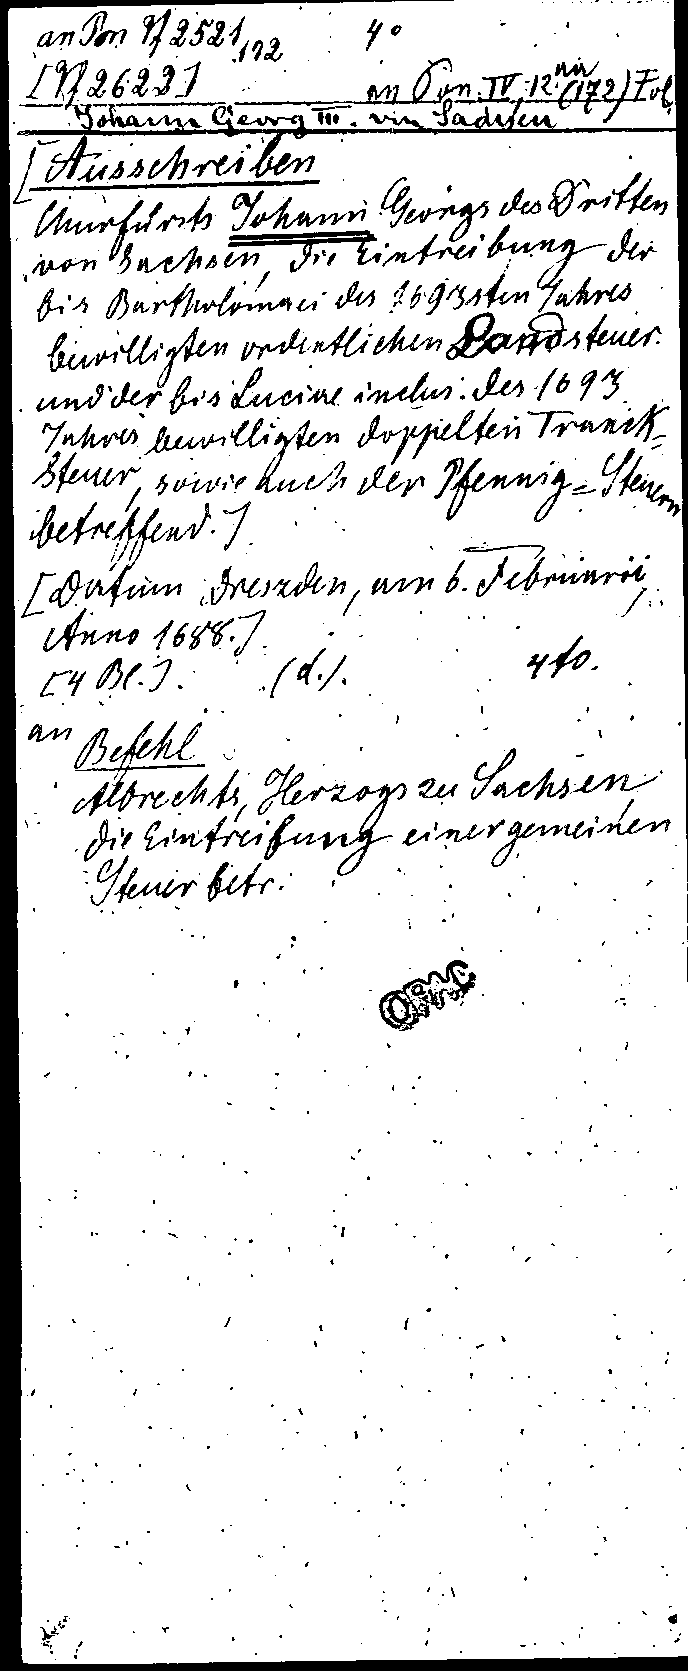 an Pon Yf 2521,172 4°
[Yf 2622] an Pon. IV, 12. an (172) Fol.
Johann Georg III. von Sachsen
[Ausschreiben
Churfürsts Johann Georgs des Dritten
von Sachsen, die Eintreibung der
bis Bartholomaei des 1693sten Jahres
bewilligten ordentlichen Landsteuer.
und der bis Luciae inclus. des 1693
Jahres bewilligten doppelten Tranck=
Steuer, sowie auch der Pfennig=Steuern
betreffend.]
[Datum Dreszden, am 6. Februarii,
Anno 1688.]
[4 Bl.]. (d.). 4to.
an Befehl
Albrechts, Herzogs zu Sachsen
die Eintreibung einer gemeinen
Steuer betr.